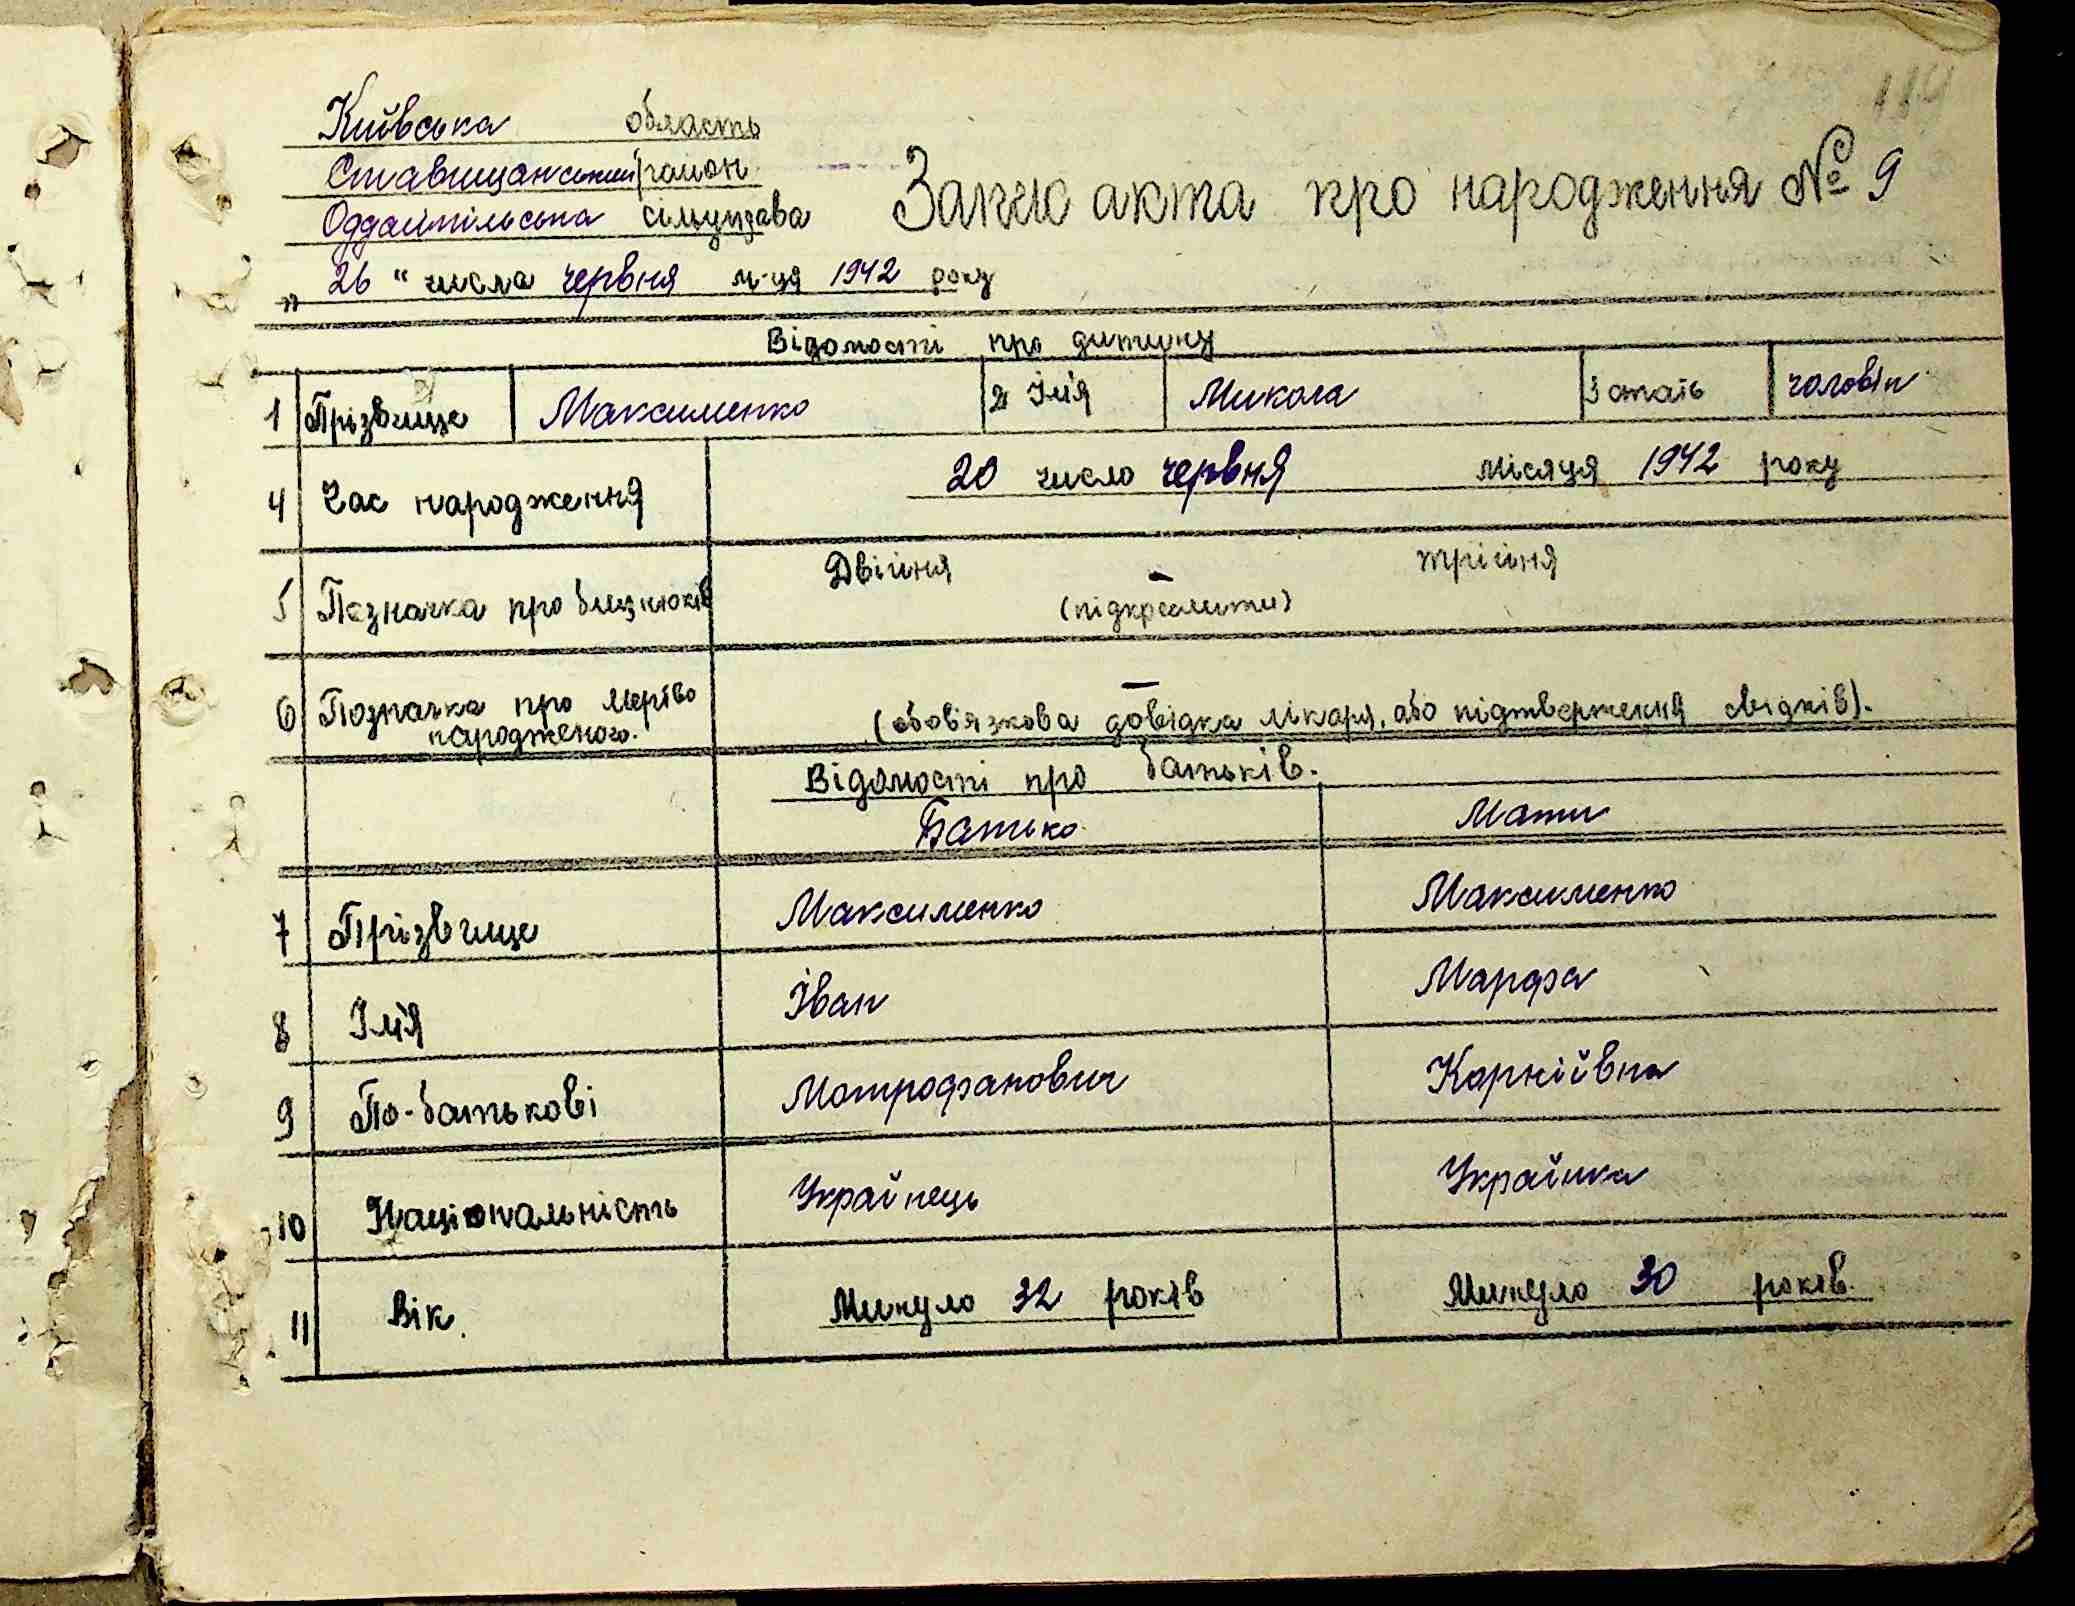 184
Київська область
Ставищанський район
Оддайпільська сільуправа
Запис акта про народження № 9
„ 26 “ числа червня м-ця 1942 року
Відомості про дитину
1 Прізвище Максименко 2 Ім'я Микола 3 стать чоловіч
4 Час народження 20 число червня місяця 1942 року
5 Позначка про близнюків Двійня - трійня
(підкреслити)
6 Позначка про мертво народженого. —
(обов'язкова довідка лікаря, або підтвердження свідків).
Відомості про батьків.
Батько Мати
7 Прізвище Максименко Максименко
8 Ім'я Іван Марфа
9 По-батькові Мотрофанович Корніївна
10 Національність Украйнець Украйнка
11 Вік. Минуло 32 років Минуло 30 років.